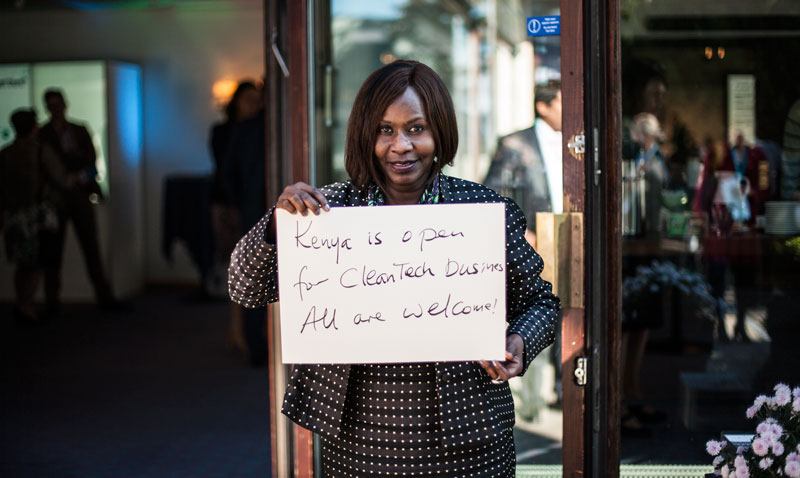 Kenya is open
for CleanTech business
All are welcome!